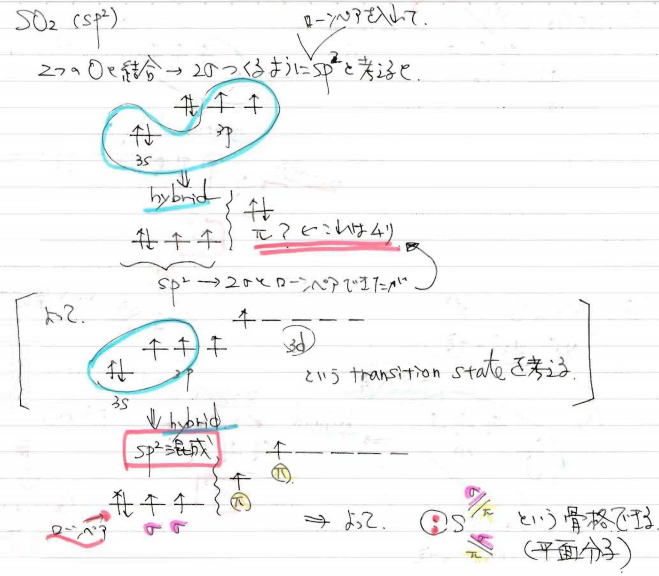 SO₂ (sp²)
ローンペアを入れて.
2つのOと結合 → 2σつくるようにsp²と考えると.
3s 3p
⇓
hybrid
π? ← これはムリ
sp² → 2σとローンペアできたが
よって.
3s 3p 3d
という transition stateを考える.
⇓ hybrid
sp²混成
π π
ローンペア σ σ
⇒ よって. :S σ/π σ/π という骨格できる.
(平面分子)